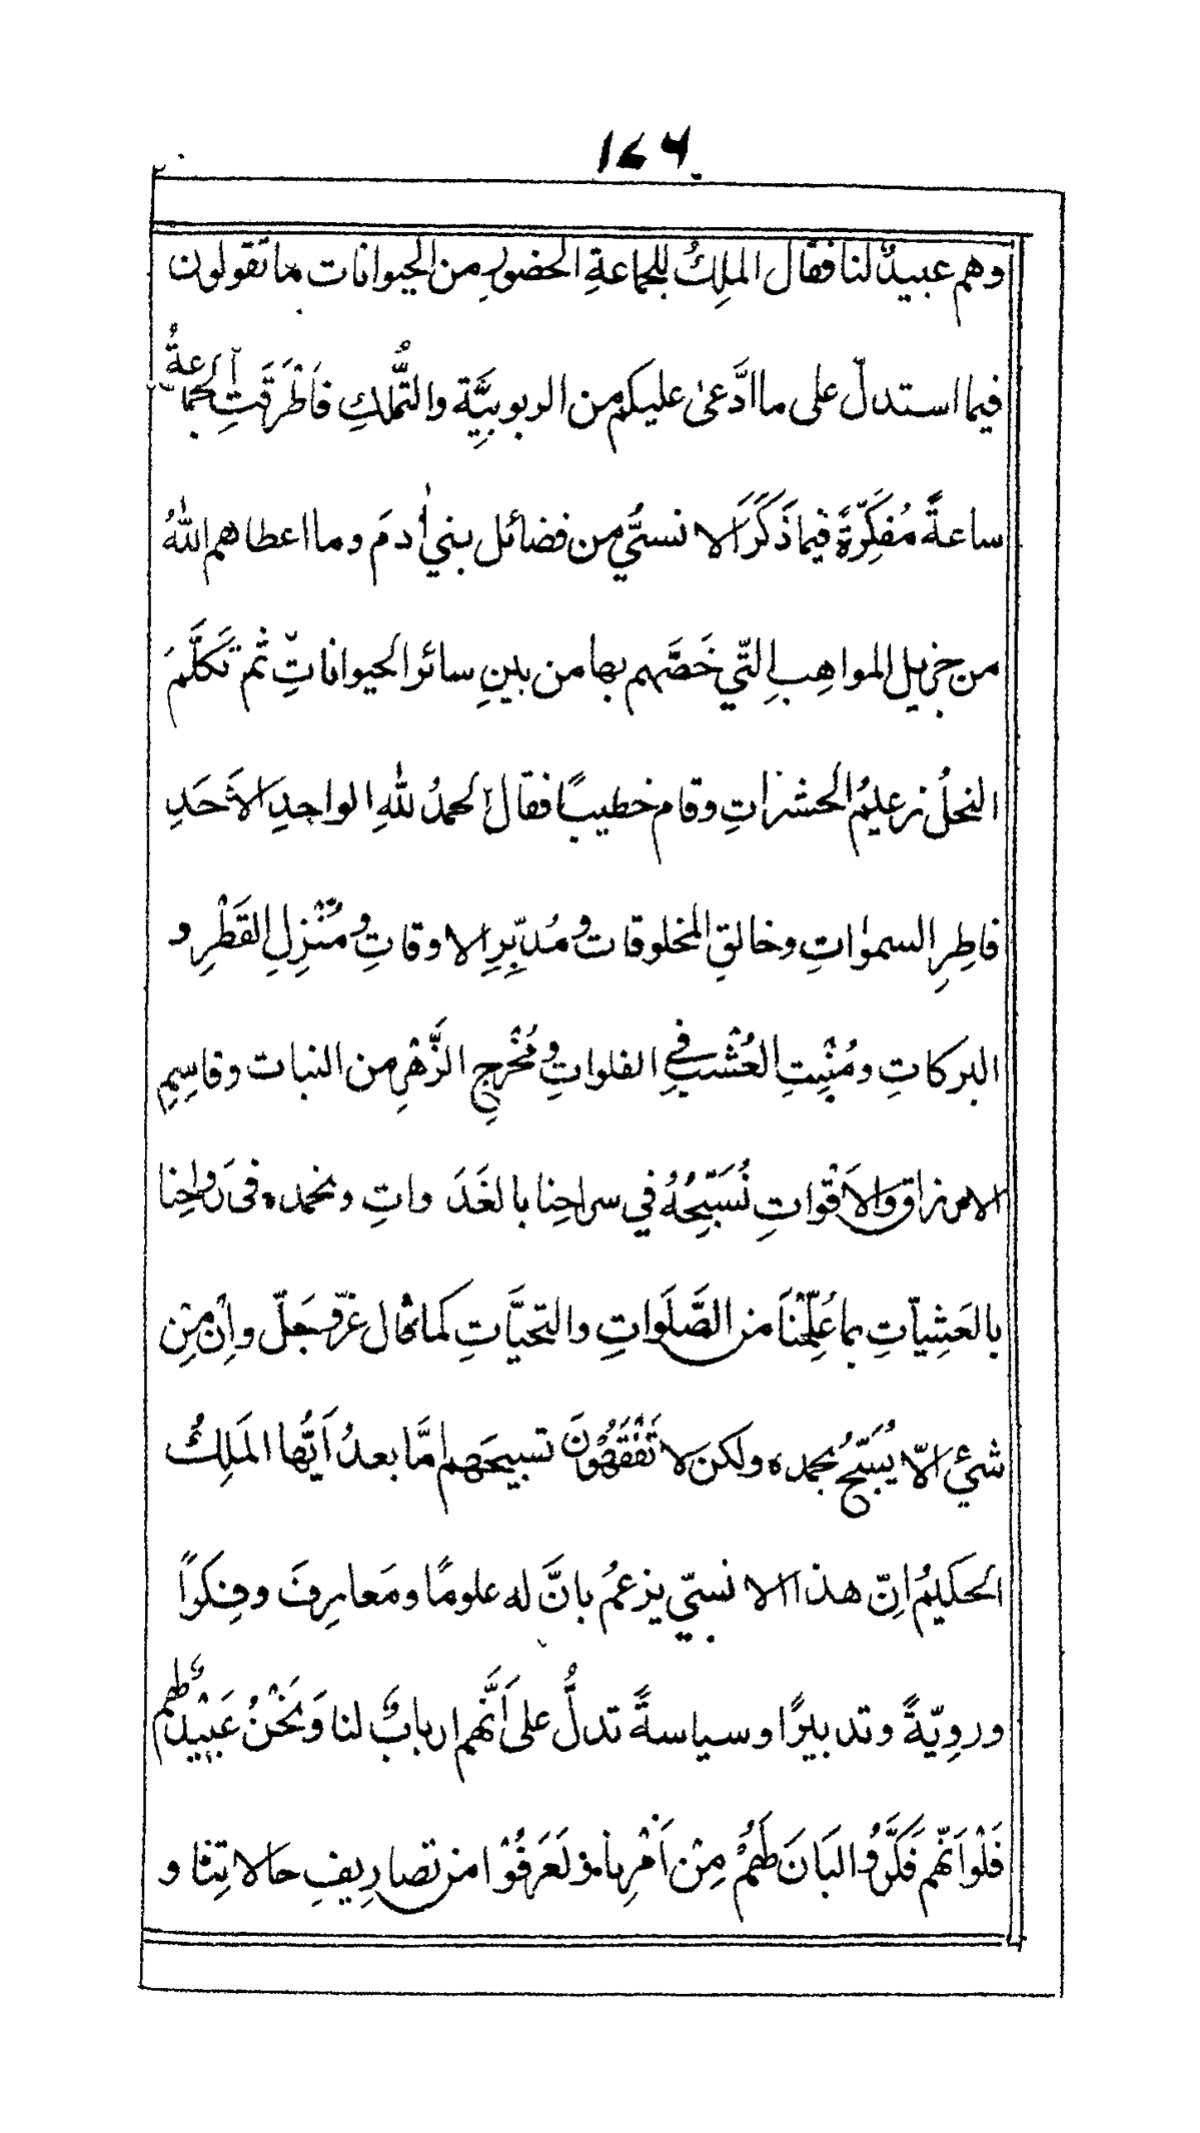 ۱۷۶
وهم عبيدٌ لنا فقال الملِكُ للجماعةِ الحضورِ من الحيوانات ما تقولون
فيما استدلّ على ما ادَّعىٰ عليكم من الربوبيَّة والتُّملكِ فَاَطْرَقَتِ الجماعةُ
ساعةً مُفكِّرةً فيما ذَكَرَ الانسيُّ من فضائل بني اٰدمَ وما اعطاهم اللّٰهُ
من جزيل المواهِبِ التّي خَصَّهم بها من بينِ سائر الحيواناتِ ثم تَكلَّمَ
النحلُ زعليمُ الحشراتِ وقام خطيبًا فقال الحمدُ للّٰهِ الواحِدِ الاَحَدِ
فاطِرِ السمٰواتِ وخالقِ المخلوقات ومُدبِّرِ الاوقاتِ ومُنْزِلِ القَطْرِ و
البركاتِ ومُنْبِتِ العُشْبِ في الفلواتِ ومُخْرِجِ الزَّهْرِ من النبات وقاسِمِ
الارزاق والاَقْواتِ نُسَبِّحُهُ في سراحِنا بالغَدَواتِ ونحمده فى رَواحِنا
بالعَشِياّتِ بما عُلِّمْنَا من الصَّلَواتِ والتحيَّاتِ كما قال عزّ وجَلّ واِنْ مِنْ
شيْئٍ الاّ يُسَبّحُ بحمده ولكن لا تَفْقَهُوْنَ تسبيحَهم امَّا بعدُ اَيُّها المَلِكُ
الحكيمُ اِنّ هذا الانسيّ يزعمُ بانَّ له علومًا ومَعارِفَ وفِكرًا
ورويّةً وتدبيرًا وسياسةً تدلُّ على اَنَّهم اربابٌ لنا وَنحْنُ عَبِيْدٌ لهم
فَلَوْ اَنّهم فَكَّرُوا لبَانَ لَهُمْ مِنْ اَمْرِنا ولَعَرَفُوْا من تصارِيفِ حَالاتِنا و